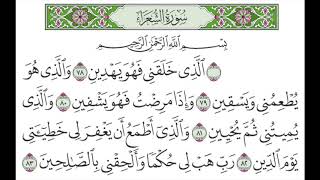 سُورَةُ الشُّعَرَاءِ
بِسْمِ اللَّهِ الرَّحْمَٰنِ الرَّحِيمِ
الَّذِي خَلَقَنِي فَهُوَ يَهْدِينِ ٧٨ وَالَّذِي هُوَ
يُطْعِمُنِي وَيَسْقِينِ ٧٩ وَإِذَا مَرِضْتُ فَهُوَ يَشْفِينِ ٨٠ وَالَّذِي
يُمِيتُنِي ثُمَّ يُحْيِينِ ٨١ وَالَّذِي أَطْمَعُ أَن يَغْفِرَ لِي خَطِيئَتِي
يَوْمَ الدِّينِ ٨٢ رَبِّ هَبْ لِي حُكْمًا وَأَلْحِقْنِي بِالصَّٰلِحِينَ ٨٣